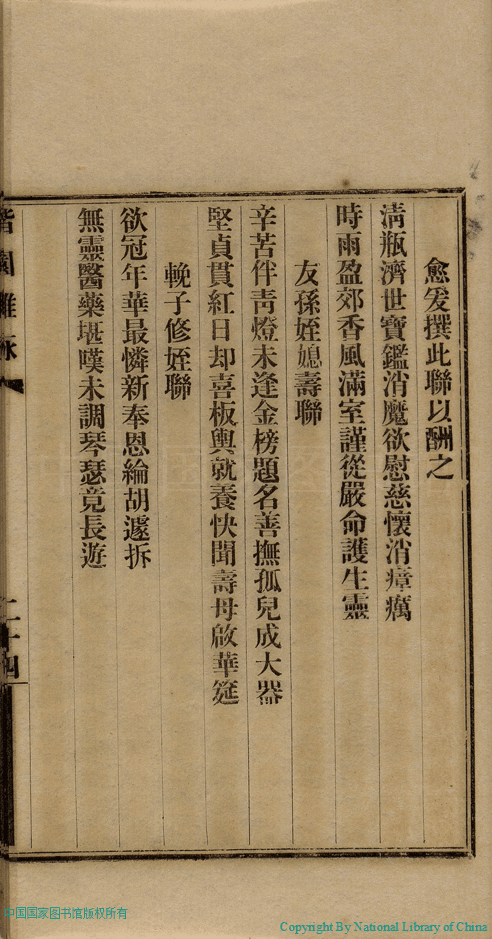 愈爰撰此聯以酬之
淸瓶濟世寶鑑消魔欲慰慈懷消瘴癘
時雨盈郊香風滿室謹從嚴命護生靈
友孫姪媳壽聯
辛苦伴靑燈未逢金榜題名善撫孤兒成大器
堅貞貫紅日却喜板輿就養快聞壽母啟華筵
輓子修姪聯
欲冠年華最憐新奉恩綸胡遽拆
無靈醫藥堪嘆未調琴瑟竟長遊
雜詠
二十四
中国国家图书馆版权所有
Copyright By National Library of China